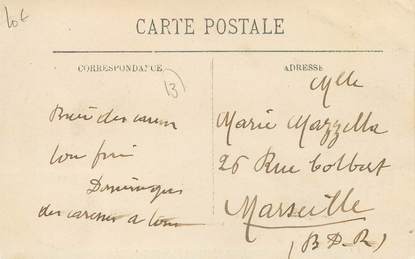 10€
CARTE POSTALE
CORRESPONDANCE
ADRESSE
13
Mlle
Marie Mazzella
26 Rue Colbert
Marseille
(B.D.R)
des
ton
Dominique
des caresses a tous